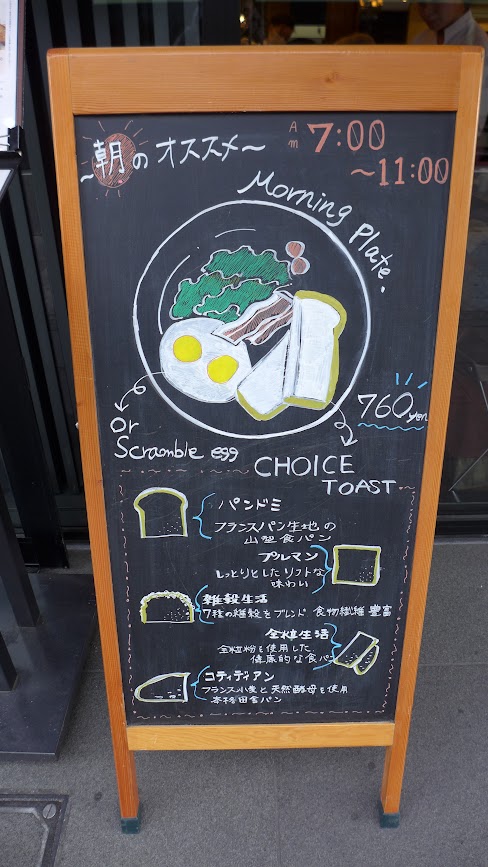 ~朝のオススメ~
Am 7:00
~11:00
Morning Plate.
Or
Scramble egg
760yen
CHOICE
TOAST
パンドミ
フランスパン生地の
山型食パン
プルマン
しっとりとしたソフトな
味わい
雑穀生活
7種の雑穀をブレンド 食物繊維豊富
全粒生活
全粒粉を使用した
健康的な食パン
コティディアン
フランス小麦と天然酵母を使用
食パン